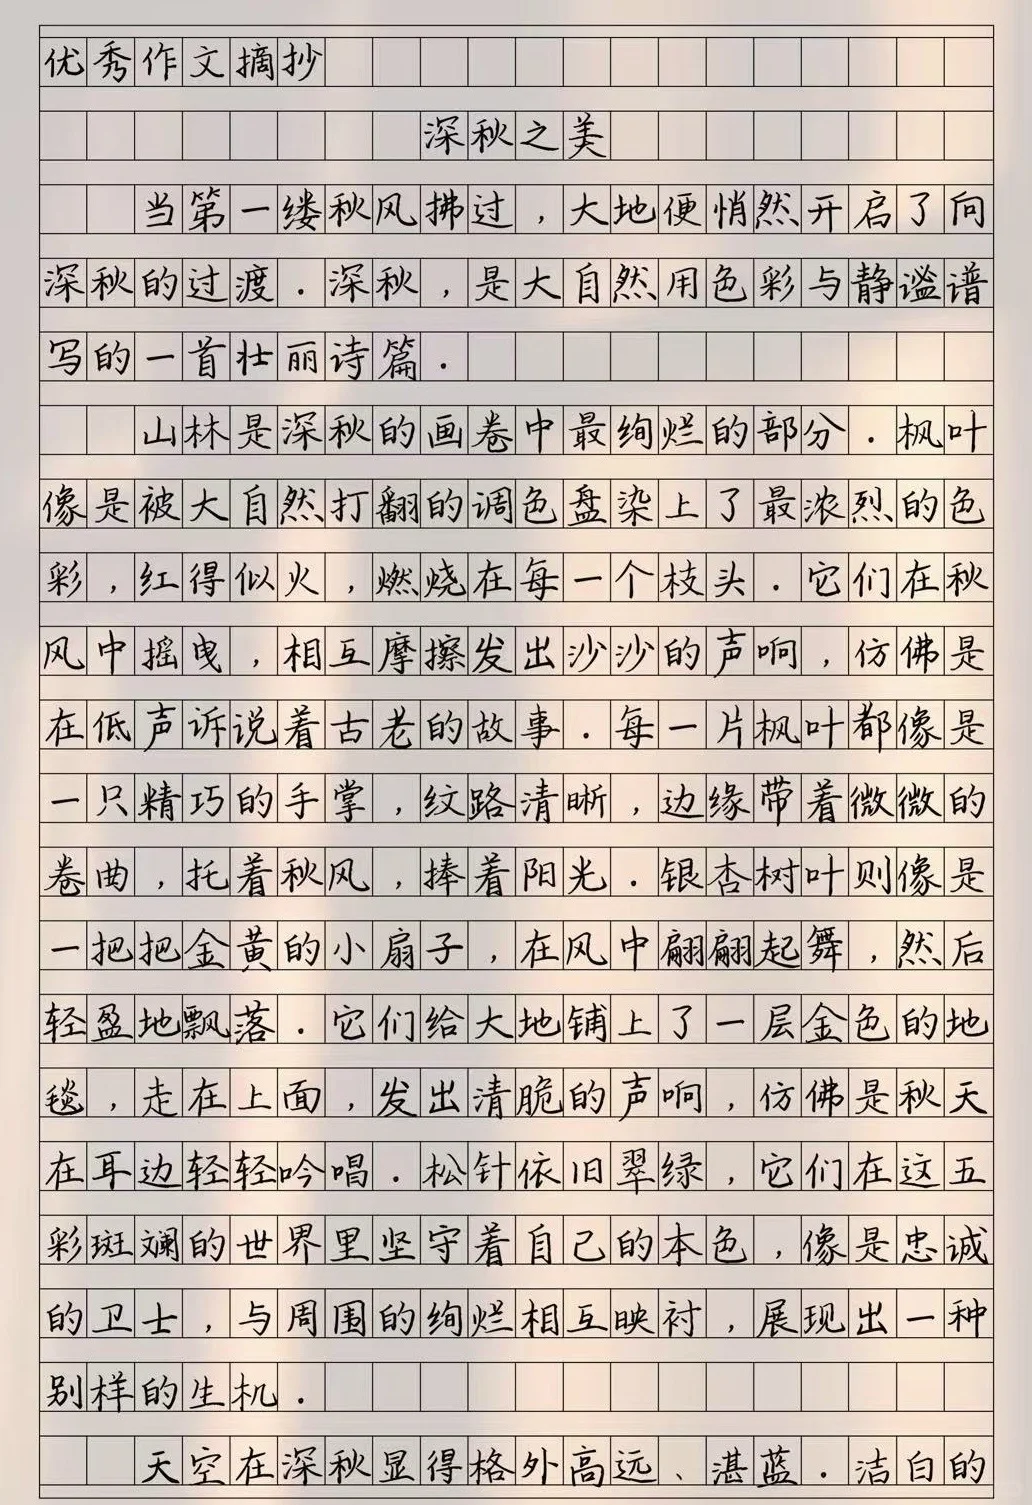 优秀作文摘抄
深秋之美
当第一缕秋风拂过，大地便悄然开启了向
深秋的过渡．深秋，是大自然用色彩与静谧谱
写的一首壮丽诗篇．
山林是深秋的画卷中最绚烂的部分．枫叶
像是被大自然打翻的调色盘染上了最浓烈的色
彩，红得似火，燃烧在每一个枝头．它们在秋
风中摇曳，相互摩擦发出沙沙的声响，仿佛是
在低声诉说着古老的故事．每一片枫叶都像是
一只精巧的手掌，纹路清晰，边缘带着微微的
卷曲，托着秋风，捧着阳光．银杏树叶则像是
一把把金黄的小扇子，在风中翩翩起舞，然后
轻盈地飘落．它们给大地铺上了一层金色的地
毯，走在上面，发出清脆的声响，仿佛是秋天
在耳边轻轻吟唱．松针依旧翠绿，它们在这五
彩斑斓的世界里坚守着自己的本色，像是忠诚
的卫士，与周围的绚烂相互映衬，展现出一种
别样的生机．
天空在深秋显得格外高远、湛蓝．洁白的